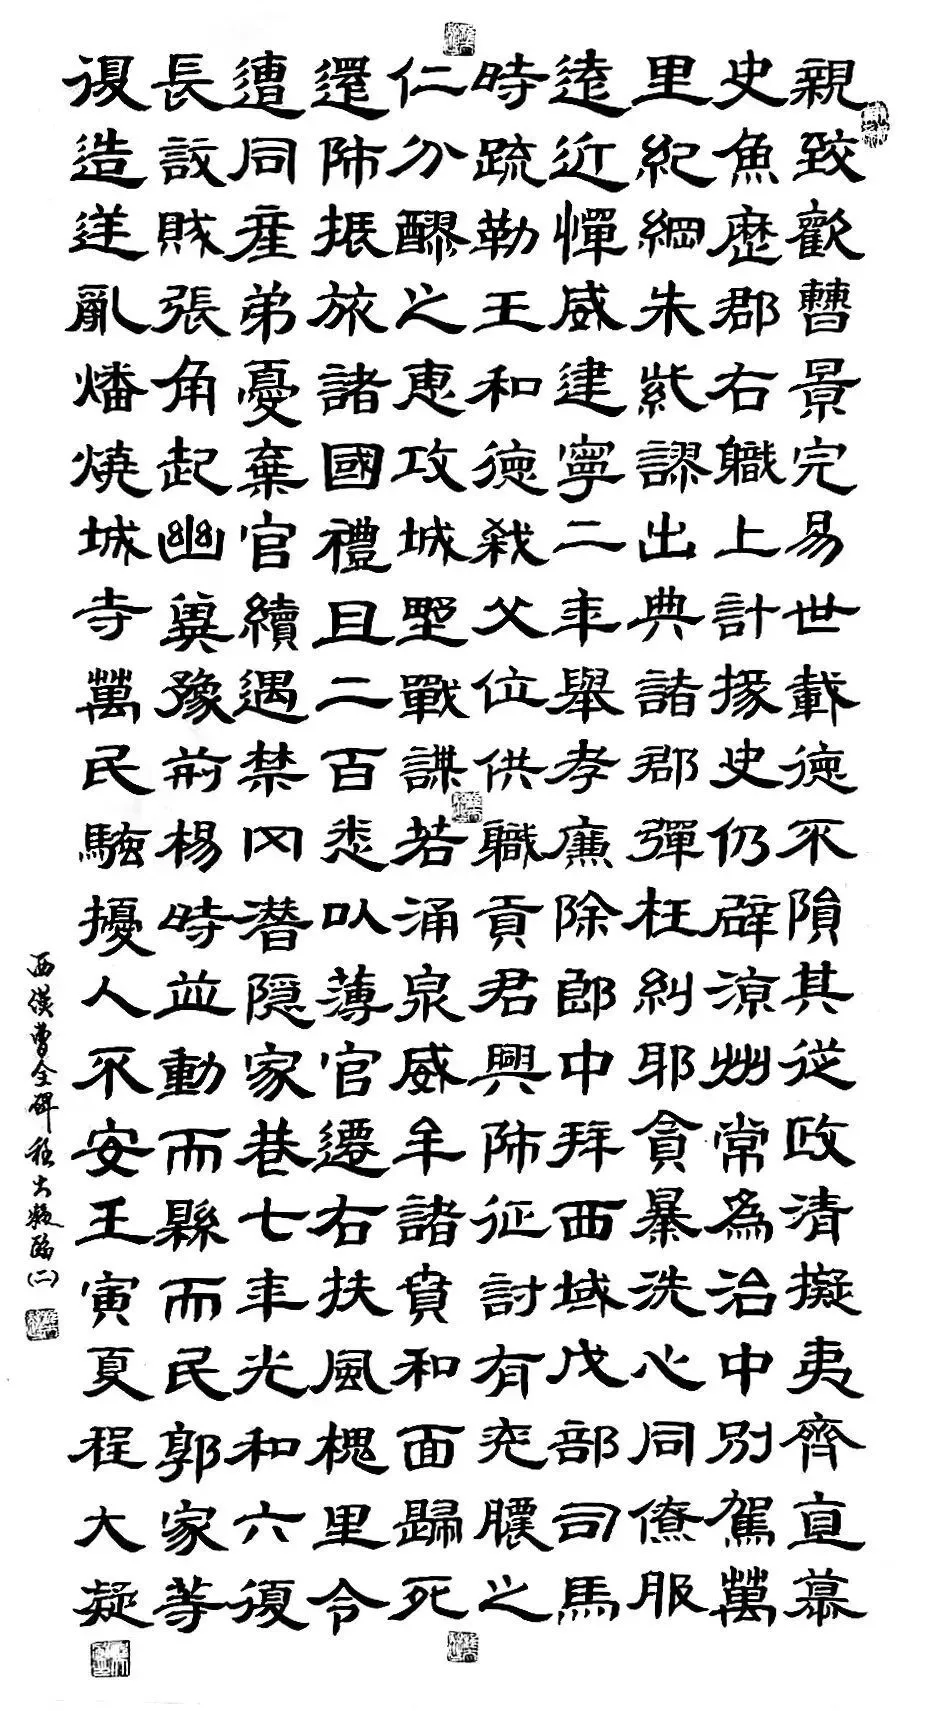 親致歡曹景完易世載德不隕其從政清擬夷齊直慕
史魚歷郡右職上計掾史仍辟涼州常為治中別駕萬
里紀綱朱紫謬出典諸郡彈枉糾邪貪暴洗心同僚服
遠近憚威建寧二年舉孝廉除郎中拜西域戊部司馬
時疏勒王和德殺父位供職貢君興師征討有兖膿之
仁分醪之惠攻城野戰謀若涌泉威牟諸賁和面歸死
還師振旅諸國禮且二百悉以薄官遷右扶風槐里令
遭同產弟憂棄官續遇禁冈潛隱家巷七年光和六復
長訞賊張角起幽冀豫荊楊時並動而縣而民郭家等
復造逆亂燔燒城寺萬民騷擾人不安王寅夏程大凝
西漢曹全碑程大凝臨(二)